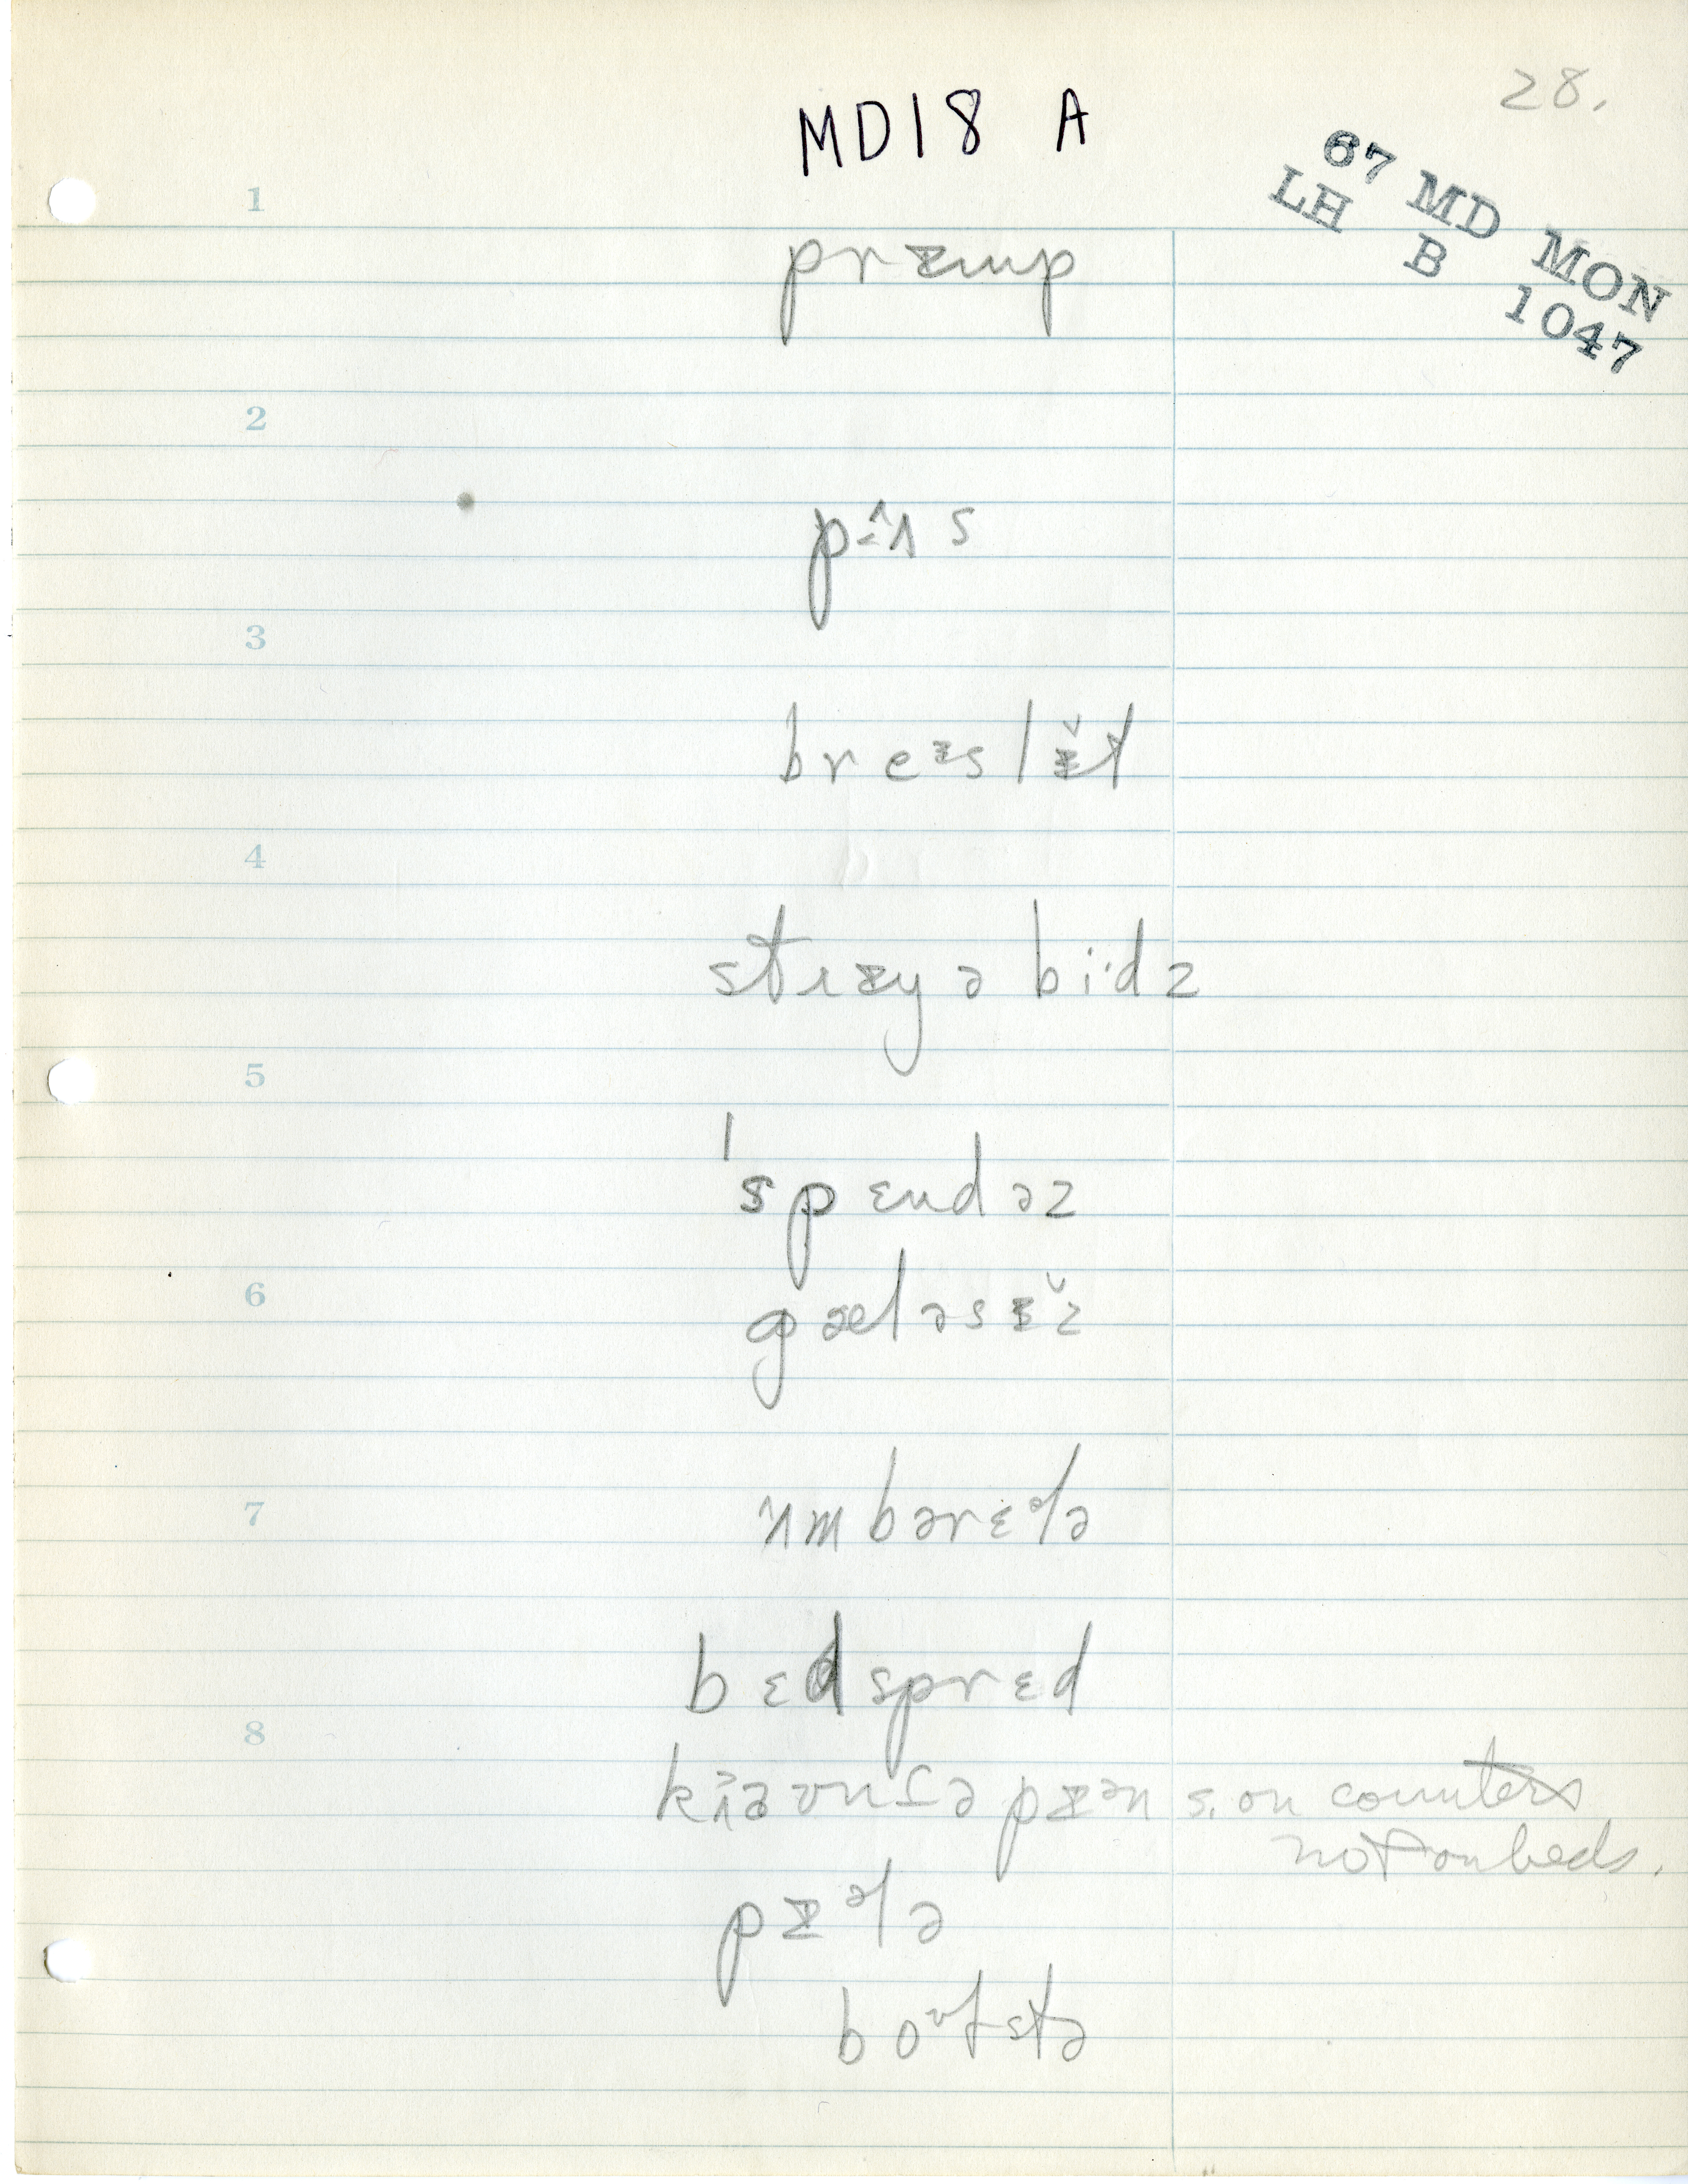 28.
MD18 A
67 MD MON
LH B 1047
1
prɪmp
2
pɜˆʌs
3
breᶦslɪ̆t
4
strɪyə bi·dz
5
ˈspɛndəz
6
gæləsɪ̆z
7
ʌmbərɛᵊlə
bɛdsprɛd
8
s. on counters
not on beds.
pɪᵊlə
boᶷlstə